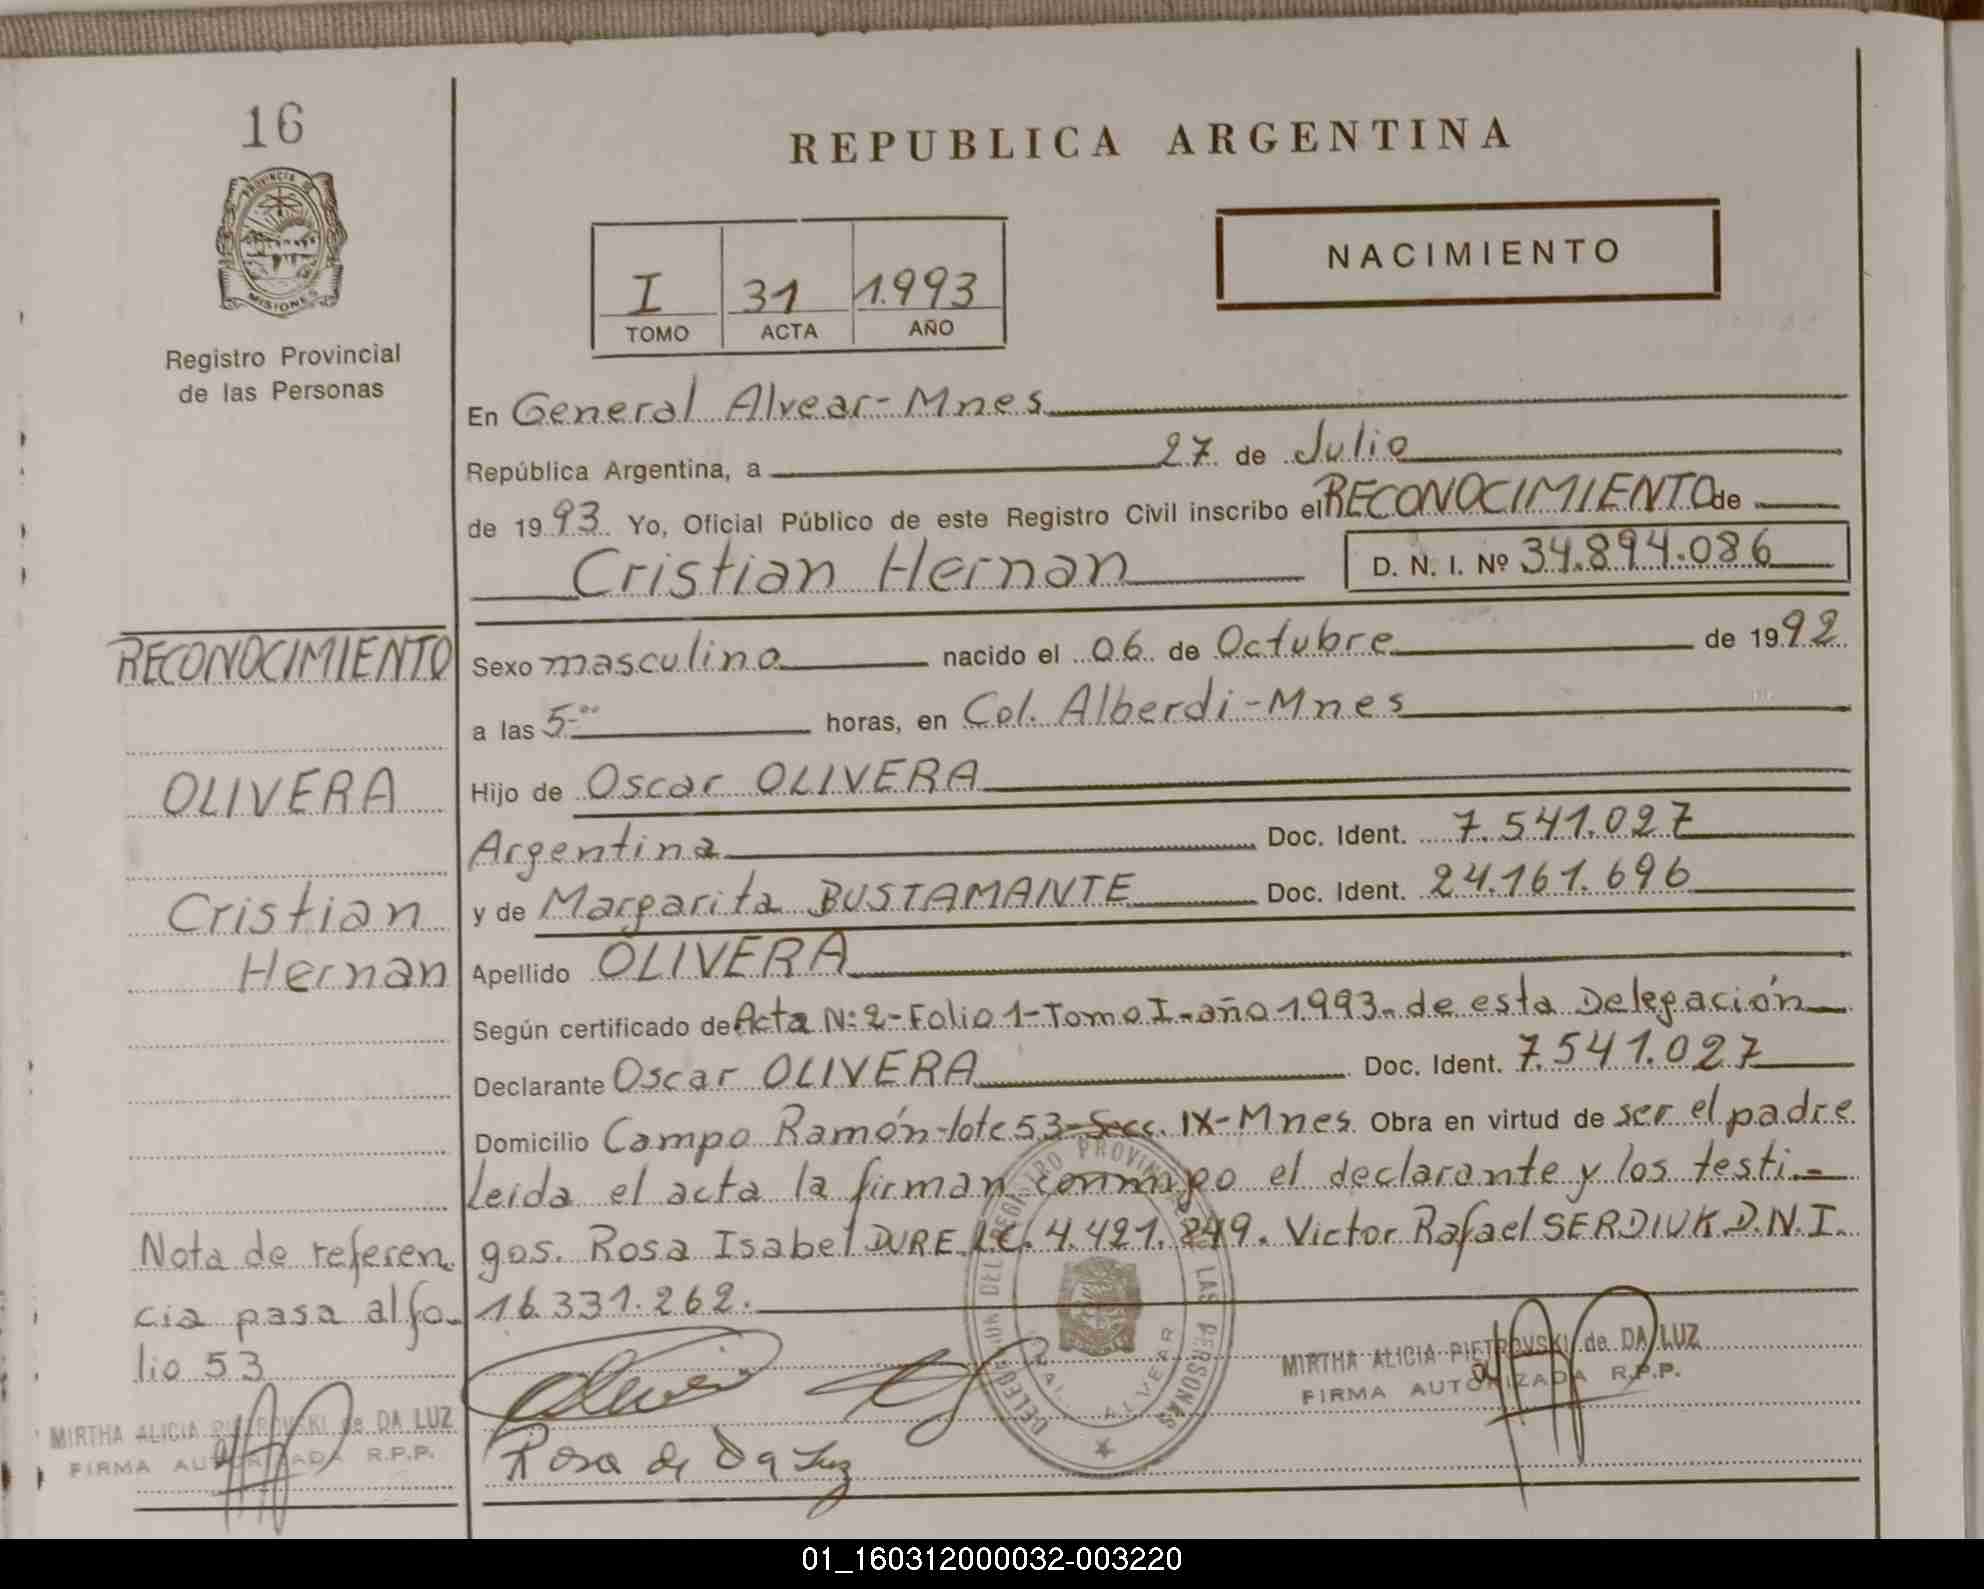 16
PROVINCIA DE
MISIONES
Registro Provincial
de las Personas
RECONOCIMIENTO
OLIVERA
Cristian
Hernan
Nota de referen
cia pasa al fo-
lio 53
MIRTHA ALICIA PIETROVSKI de DA LUZ
FIRMA AUTORIZADA R.P.P.
REPUBLICA ARGENTINA
NACIMIENTO
I 31 1.993
TOMO ACTA AÑO
En General Alvear-Mnes
República Argentina, a 27 de Julio
de 1993 Yo, Oficial Público de este Registro Civil inscribo el RECONOCIMIENTO de
Cristian Hernan D. N. I. Nº 34.894.086
Sexo masculino nacido el 06 de Octubre de 1992
a las 5-00 horas, en Col. Alberdi-Mnes
Hijo de Oscar OLIVERA
Argentina Doc. Ident. 7.541.027
y de Margarita BUSTAMANTE Doc. Ident. 24.161.696
Apellido OLIVERA
Según certificado de Acta N: 2-Folio 1-Tomo I-año 1.993- de esta Delegación
Declarante Oscar OLIVERA Doc. Ident. 7.541.027
Domicilio Campo Ramón-lote 53-Secc. IX-Mnes Obra en virtud de ser el padre
Leida el acta la firman conmigo el declarante y los testi-
gos. Rosa Isabel DURE L.C. 4.421.249. Victor Rafael SERDIUK D.N.I.
16.331.262.
Rosa de Da Luz
DELEGACION DEL REGISTRO PROVINCIAL DE LAS PERSONAS
GRAL. ALVEAR
MIRTHA ALICIA PIETROVSKI de DA LUZ
FIRMA AUTORIZADA R.P.P.
01_160312000032-003220